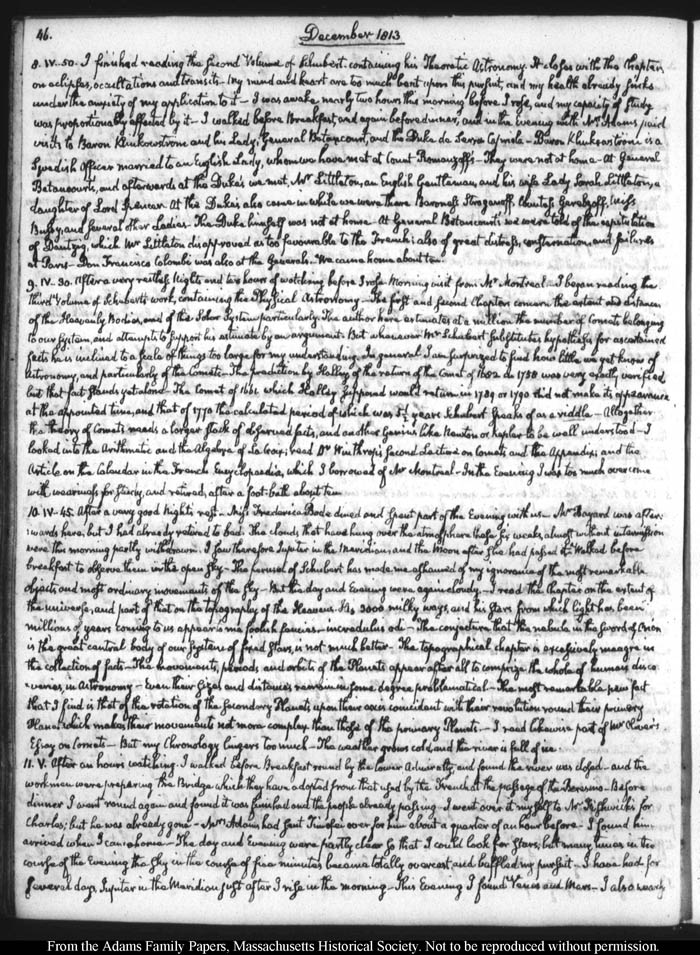 46.
December 1813
8. IV-50. I finished reading the second Volume of Schubert containing his Theoretic Astronomy. It closes with the Chapters
on eclipses, occultations and transits. My mind and heart are too much bent upon this pursuit, and my health already sinks
under the anxiety of my application to it— I was awake nearly two hours this morning before I rose, and my capacity of study
was proportionably affected by it— I walked before Breakfast, and again before dinner, and in the Evening with Mrs Adams paid
visits to Baron and his Lady, General Betancourt, and the Duke de Serra Capriola— Baron is a
Swedish Officer married to an English Lady, whom we have met at Count Romanzoff's— They were not at home— At General
Betancourt's, and afterwards at the Duke's we met, Mr Littleton, an English Gentleman, and his wife Lady Sarah Littleton, a
daughter of Lord Spencer. At the Duke's also came in while we were there Baroness Stroganoff, Countess Miss
and several other Ladies. The Duke himself was not at home. At General Betancourt's we were told of the capitulation
of Dantzig, which Mr Littleton disapproved as too favourable to the French; also of great distress, consternation, and failures
at Paris— Don Francisco Colombi was also at the General's. We came home about ten.
9. IV-30. After a very restless Night, and two hours of watching before I rose. Morning visit from Mr Montreal— I began reading the
third Volume of Schubert's work, containing the Physical Astronomy— The first and second Chapters concern the extent and distances
of the Heavenly Bodies, and of the Solar System particularly. The author here estimates at a million the number of Comets belonging
to our System, and attempts to support his estimate by an argument. But whenever Mr Schubert substitutes hypothesis for ascertained
facts he is inclined to a scale of things too large for my understanding. In general I am surprized to find how little we yet know of
Astronomy, and particularly of the Comets. The prediction by Halley of the return of the Comet of 1682 in 1758 was very exactly verified
but that fact stands yet alone— The Comet of 1661 which Halley supposed would return in 1789 or 1790 did not make its appearance
at the appointed time, and that of 1770 the calculated period of which was 5½ years Schubert speaks of as a riddle— Altogether
the theory of Comets needs a larger stock of observed facts, and another Genius like Newton or Kepler to be well understood— I
looked into the Arithmetic and the Algebra of La Croix; read Dr Winthrop's second Lecture on Comets and the Appendix; and the
Article on the Calendar in the French Encyclopaedia, which I borrowed of Mr Montreal— In the Evening I was too much overcome
with weariness for study, and retired, after a foot-bath about ten.
10. IV-45. After a very good Night's rest— Miss Frederica Bode dined and spent part of the Evening with us— Mr Bayard was after-
wards here, but I had already retired to bed. The clouds that have hung over the atmosphere these six weeks, almost without intermission
were this morning partly withdrawn. I saw therefore Jupiter in the Meridian, and the Moon after she had passed it. Walked before
breakfast to observe them in the open sky— The perusal of Schubert has made me ashamed of my ignorance of the most remarkable
objects, and most ordinary movements of the sky— But the day and Evening were again cloudy. I read the Chapter on the extent of
the universe, and part of that on the topography of the Heavens. His 3000 milky ways, and his Stars from which light has been
millions of years coming to us appear to me foolish fancies— incredulus odi— The conjecture that the nebula in the Sword of Orion
is the great central body of our System of fixed Stars, is not much better— The topographical chapter is excessively meagre in
the collection of facts— The movements, periods and orbits of the Planets appear after all to comprize the whole of human disco-
veries in Astronomy— Even their sizes and distances remain in some degree problematical— The most remarkable new fact
that I find is that of the rotation of the secondary Planets upon their axes coincident with their revolution round their primary
Planet, which makes their movement not more complex than those of the primary Planets— I read likewise part of Mr
Essay on Comets— But my Chronology lingers too much— The weather grows cold and the river is full of ice.
11. V. After an hour's watching. I walked before Breakfast round by the lower Admiralty, and found the river was closed— and the
workmen were preparing the Bridge which they have adopted from that used by the French at the passage of the Beresina. Before
dinner I went round again and found it was finished and the people already passing— I went over it myself to Mr Fishwick's for
Charles; but he was already gone— Mrs Adams had sent Timofei over for him about a quarter of an hour before— I found him
arrived when I came home— The day and Evening were partly clear so that I could look for Stars; but many times in the
course of the Evening the sky in the course of five minutes became totally overcast, and baffled my pursuit— I have had for
several days Jupiter in the Meridian just after I rise in the morning— This Evening I found Venus and Mars— I also nearly
From the Adams Family Papers, Massachusetts Historical Society. Not to be reproduced without permission.